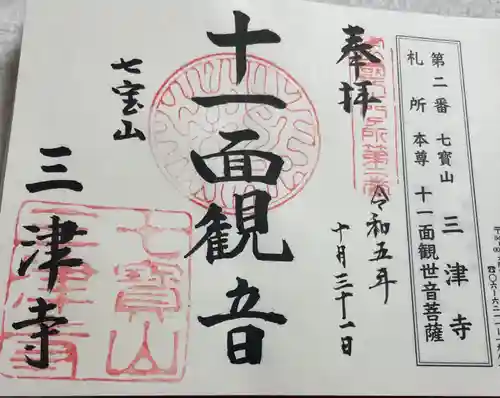 第二番 七寶山 三津寺
札所 本尊 十一面観世音菩薩
奉拝
令和五年
十月三十一日
十一面観音
七宝山
三津寺
七寶山
三津寺